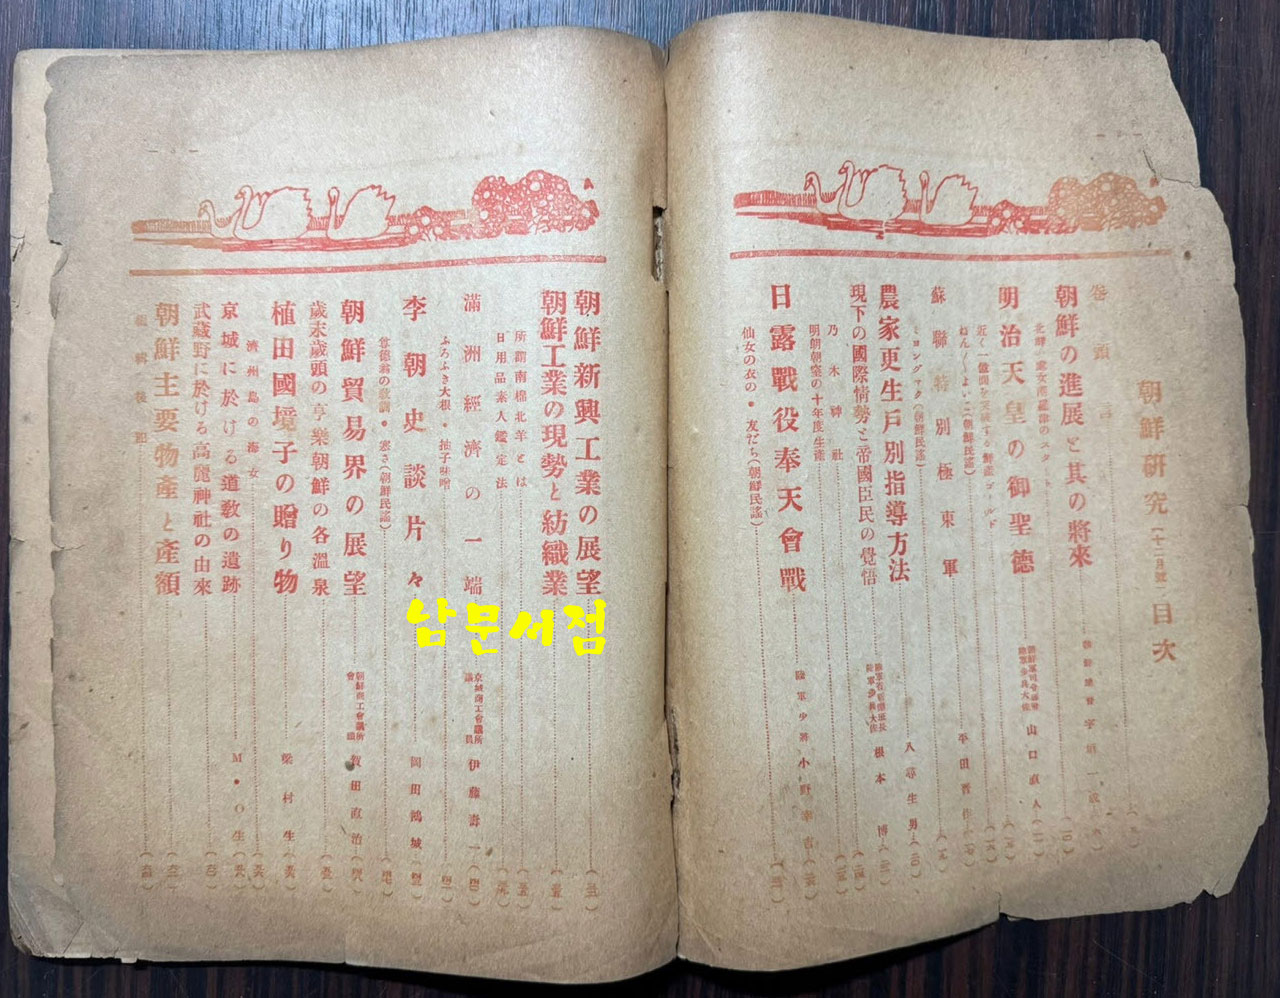 朝鮮研究(十二月號)目次
卷頭言
朝鮮の進展と其の將來
明治天皇の御聖德 山口直人
近く一億圓を突破する鮮産ゴールド
ねんくよいこ(朝鮮民謠)
蘇聯特別極東軍 平田晋作
ミヨングァク(朝鮮民謠)
農家更生戶別指導方法 八尋生男
現下の國際情勢と帝國臣民の覺悟 根本博
乃木神社
明朗朝窒の十年度生産
日露戰役奉天會戰 陸軍少將 小野幸吉
仙女の衣の・友だち(朝鮮民謠)
朝鮮新興工業の展望
朝鮮工業の現勢と紡織業
所謂南棉北羊とは
日用品素人鑑定法
滿洲經濟の一端 京城商工會議所議員 伊藤壽一
ふろふき大根・柚子味噌
李朝史談片々 岡田鴻城
朝鮮貿易界の展望 朝鮮商工會議所 賀田直治
歲末歲頭の享樂朝鮮の各溫泉
植田國境子の贈り物 梁村生
濟州島の海女
京城に於ける道敎の遺跡 M・O生
武藏野に於ける高麗神社の由來
朝鮮主要物產と產額
編輯後記
남문서점